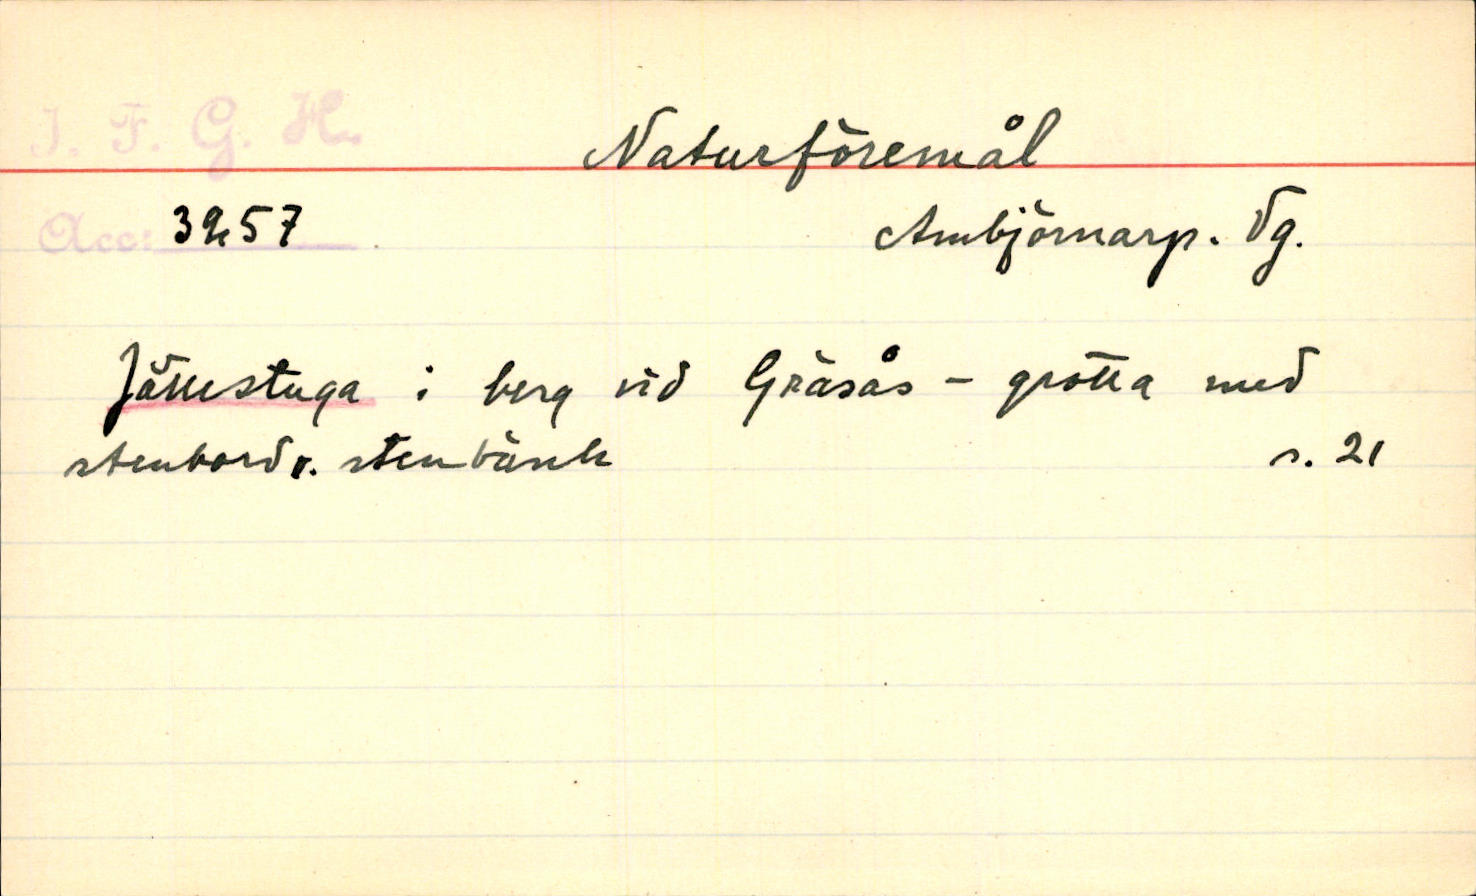 I. F. G. H.
Naturföremål
Acc: 3957
Ambjörnarp. Vg.
Jättestuga i berg vid Gräsås - grotta med
stenbord o. stenbänk s. 21